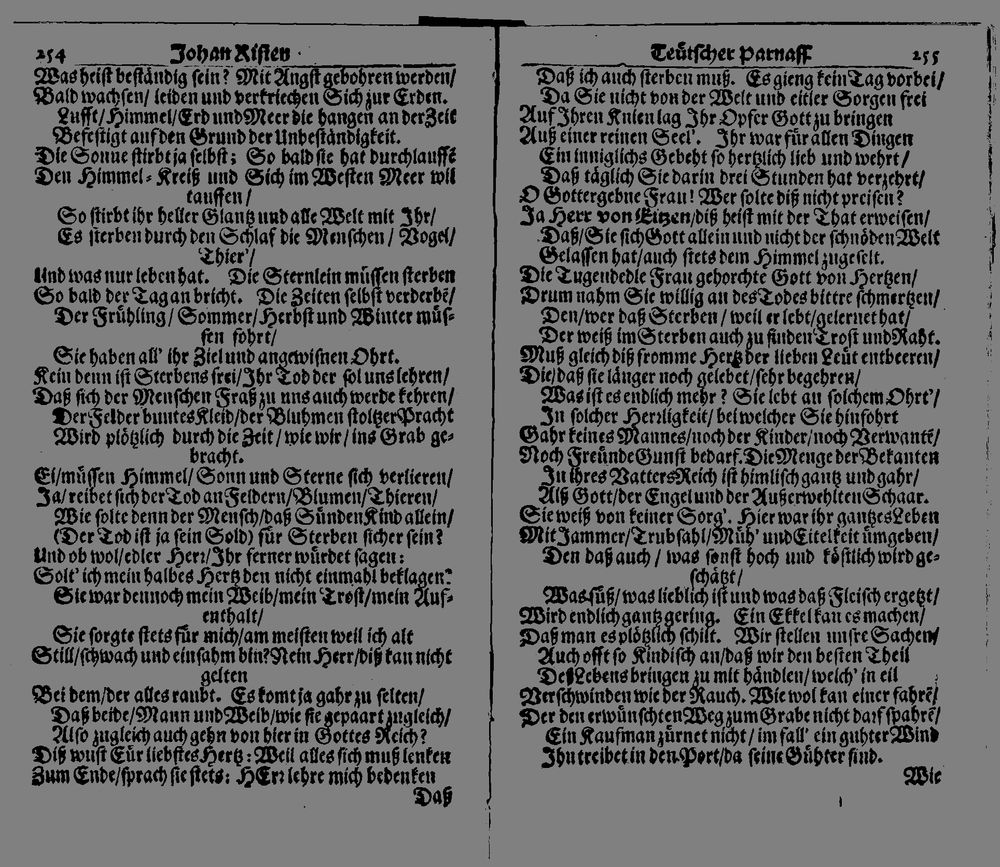 254 Johan Risten
Was heist beständig sein? Mit Angst gebohren werden/
Bald wachsen/ leiden und verkriechen Sich zur Erden.
Lufft/ Himmel/ Erd und Meer die hangen an der Zeit
Befestigt auf den Grund der Unbeständigkeit.
Die Sonne stirbt ja selbst; So bald sie hat durchlauffē
Den Himmel-Kreiß und Sich im Westen Meer wil
tauffen/
So stirbt ihr heller Glantz und alle Welt mit Ihr/
Es sterben durch den Schlaf die Menschen/ Vogel/
Thier'/
Und was nur leben hat. Die Sternlein müssen sterben
So bald der Tag an bricht. Die Zeiten selbst verderbē/
Der Frühling/ Sommer/ Herbst und Winter müs-
sen fohrt/
Sie haben all' ihr Ziel und angewisnen Ohrt.
Kein denn ist Sterbens frei/ Ihr Tod der sol uns lehren/
Daß sich der Menschen Fraß zu uns auch werde kehren/
Der Felder buntes Kleid/ der Bluhmen stoltzer Pracht
Wird plötzlich durch die Zeit/ wie wir/ ins Grab ge-
bracht.
Ei/ müssen Himmel/ Sonn und Sterne sich verlieren/
Ja/ reibet sich der Tod an Feldern/ Blumen/ Thieren/
Wie solte denn der Mensch/ daß Sünden Kind allein/
(Der Tod ist ja sein Sold) für Sterben sicher sein?
Und ob wol/ edler Herr/ Ihr ferner würdet sagen:
Solt' ich mein halbes Hertz den nicht einmahl beklagen?
Sie war dennoch mein Weib/ mein Trost/ mein Auf-
enthalt/
Sie sorgte stets für mich/ am meisten weil ich alt
Still/ schwach und einsahm bin? Nein Herr/ diß kan nicht
gelten
Bei dem/ der alles raubt. Es komt ja gahr zu selten/
Daß beide/ Mann und Weib/ wie sie gepaart zugleich/
Also zugleich auch gehn von hier in Gottes Reich?
Diß wust Eür liebstes Hertz: Weil alles sich muß lenken
Zum Ende/ sprach sie stets: HErr lehre mich bedenken
Daß
Teütscher Parnass 255
Daß ich auch sterben muß. Es gieng kein Tag vorbei/
Da Sie nicht von der Welt und eitler Sorgen frei
Auf Ihren Knien lag Ihr Opfer Gott zu bringen
Auß einer reinen Seel'. Ihr war für allen Dingen
Ein inniglichs Gebeht so hertzlich lieb und wehrt/
Daß täglich Sie darin drei Stunden hat verzehrt/
O Gottergebne Frau! Wer solte diß nicht preisen?
Ja Herr von Eitzen/ diß heist mit der That erweisen/
Daß/ Sie sich Gott allein und nicht der schnöden Welt
Gelassen hat/ auch stets dem Himmel zugeselt.
Die Tugendedle Frau gehorchte Gott von Hertzen/
Drum nahm Sie willig an des Todes bittre schmertzen/
Den/ wer daß Sterben/ weil er lebt/ gelernet hat/
Der weiß im Sterben auch zu finden Trost und Raht.
Muß gleich diß fromme Hertz der lieben Leüt entbeeren/
Die/ daß sie länger noch gelebet/ sehr begehren/
Was ist es endlich mehr? Sie lebt an solchem Ohrt'/
In solcher Herzligkeit/ bei welcher Sie hinfohrt
Gahr keines Mannes/ noch der Kinder/ noch Verwantē/
Noch Freünde Gunst bedarf. Die Menge der Bekanten
In ihres Vatters Reich ist himlisch gantz und gahr/
Alß Gott/ der Engel und der Außerwehlten Schaar.
Sie weiß von keiner Sorg'. Hier war ihr gantzes Leben
Mit Jammer/ Trubsahl/ Müh' und Eitelkeit ümgeben/
Den daß auch/ was sonst hoch und köstlich wird ge-
schätzt/
Was süß/ was lieblich ist und was daß Fleisch ergetzt/
Wird endlich gantz gering. Ein Ekkel kan es machen/
Daß man es plötzlich schilt. Wir stellen unsre Sachen/
Auch offt so Kindisch an/ daß wir den besten Theil
Deß Lebens bringen zu mit händlen/ welch' in eil
Verschwinden wie der Rauch. Wie wol kan einer fahrē/
Der den erwünschten Weg zum Grabe nicht darf spahrē/
Ein Kaufman zürnet nicht/ im fall' ein guhter Wind
Ihn treibet in den Port/ da seine Gühter sind.
Wie